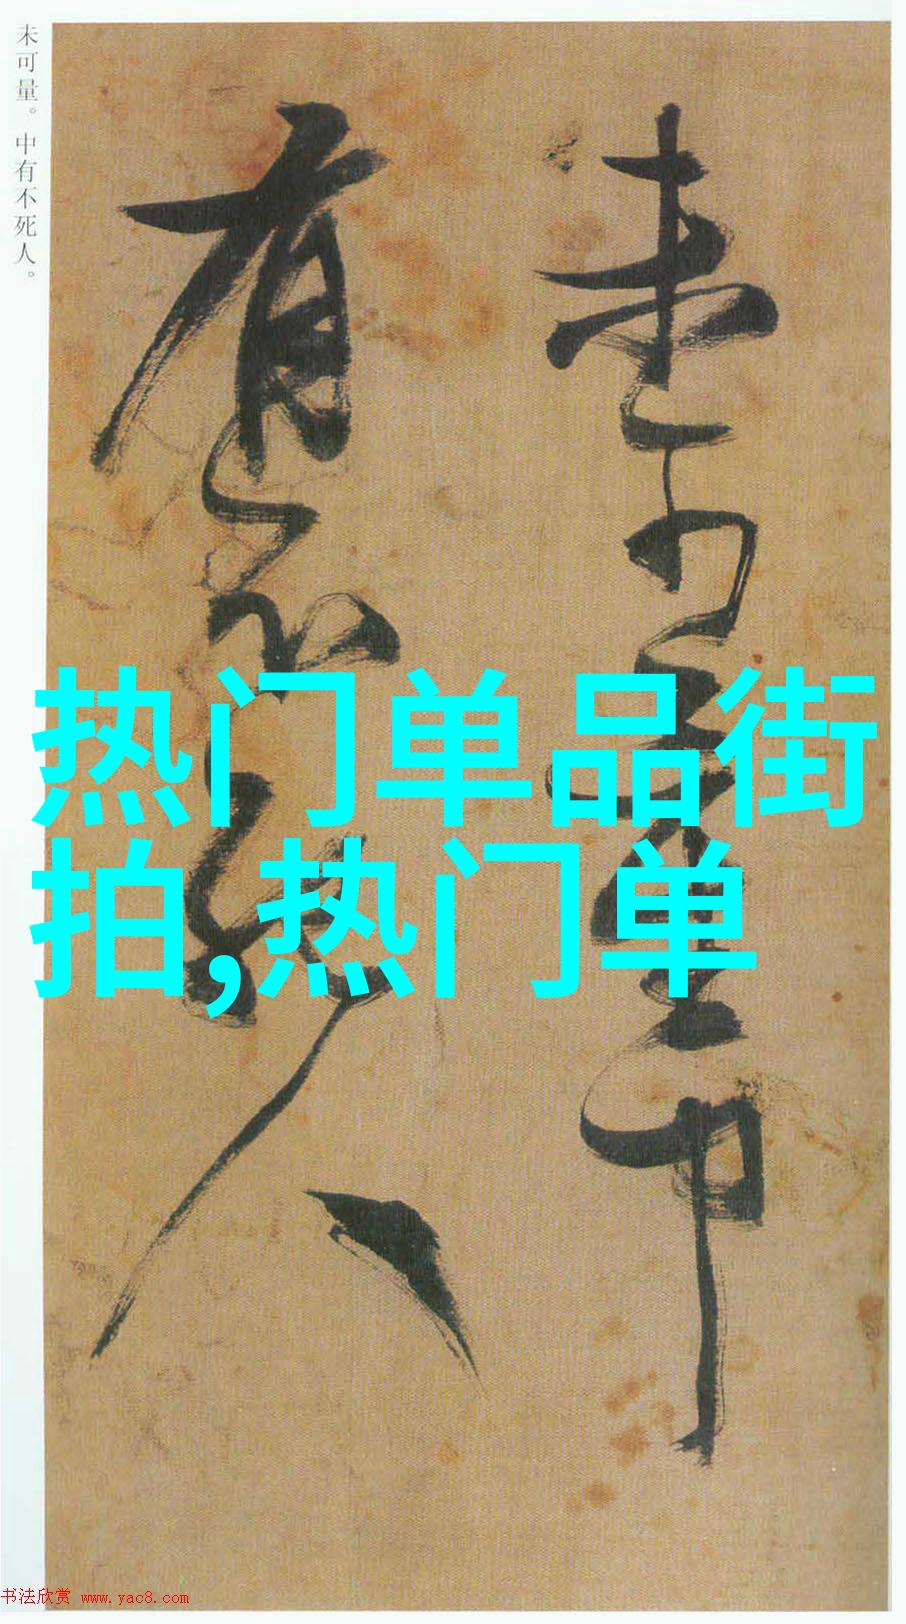 未可量。中有不死人。
未可量中
有不死人
热门单品街
拍,热门单
书法欣赏 www.yac8.com